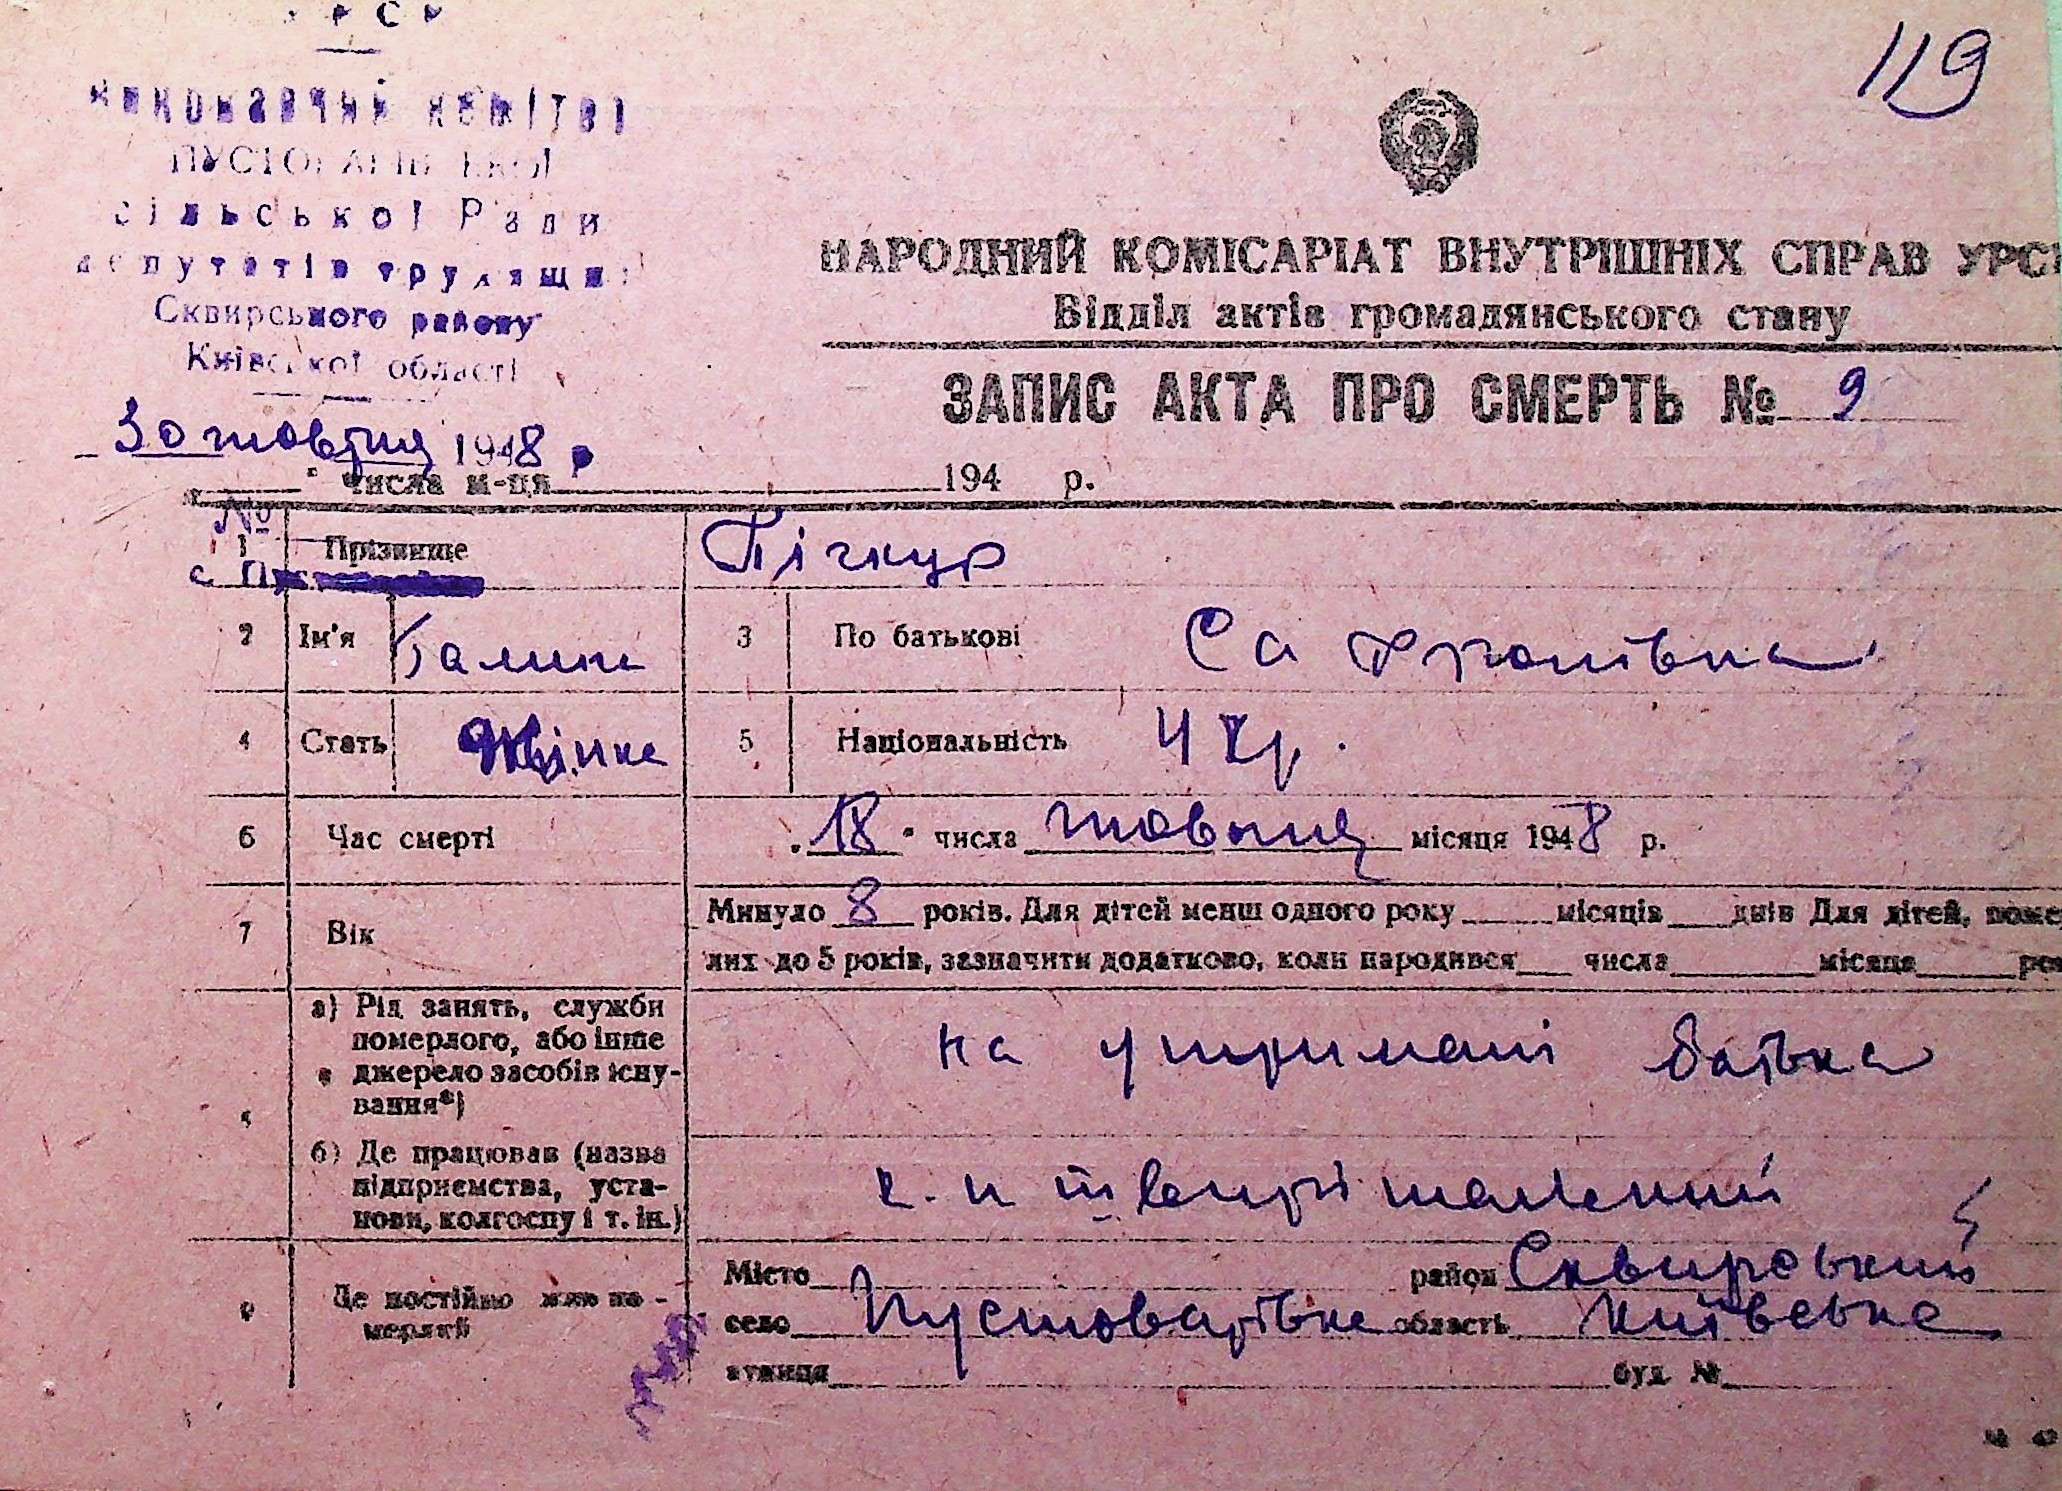 УРСР
119
Виконавчий комітет
ПУСТОВАРІВСЬКОЇ
сільської Ради
депутатів трудящих
Сквирського району
Київської області
30 жовтня 1948 р
НАРОДНИЙ КОМІСАРІАТ ВНУТРІШНІХ СПРАВ УРСР
Відділ актів громадянського стану
ЗАПИС АКТА ПРО СМЕРТЬ № 9
" числа м-ця 194 р.
№
1 Прізвище Пічкур
с. Пус
2 Ім'я Галина 3 По батькові Сафронівна
4 Стать Жінка 5 Національність Укр.
6 Час смерті „18" числа жовтня місяця 1948 р.
7 Вік Минуло 8 років. Для дітей менш одного року місяців днів Для дітей, помер-
лих до 5 років, зазначити додатково, коли народився числа місяця рок
8 а) Рід занять, служби
померлого, або інше
джерело засобів існу-
вання*)
на утримані батька
б) Де працював (назва
підприємства, уста-
нови, колгоспу і т. ін.)
к-п
9 Де постійно жив по-
мерлий
Місто район Сквирський
село Пустоварівка область Київська
вулиця буд. №